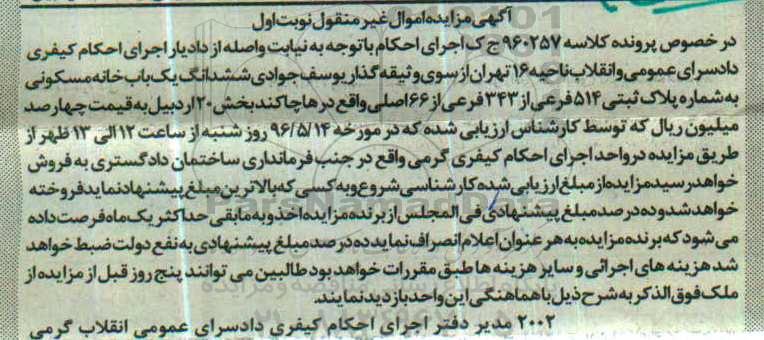 آگهی مزایده اموال غیر منقول نوبت اول
در خصوص پرونده کلاسه ۹۶۰۲۵۷ ج ک اجرای احکام باتوجه به نیابت واصله از دادیار اجرای احکام کیفری
دادسرای عمومی وانقلاب ناحیه ۱۶ تهران از سوی وثیقه گذار یوسف جوادی ششدانگ یک باب خانه مسکونی
به شماره پلاک ثبتی ۵۱۴ فرعی از ۳۴۳ فرعی از ۶۶ اصلی واقع در هاچاکند بخش ۲۰ اردبیل به قیمت چهارصد
میلیون ریال که توسط کارشناس ارزیابی شده که در مورخه ۹۶/۵/۱۴ روز شنبه از ساعت ۱۲ الی ۱۳ ظهر از
طریق مزایده در واحد اجرای احکام کیفری گرمی واقع در جنب فرمانداری ساختمان دادگستری به فروش
خواهد رسید مزایده از مبلغ ارزیابی شده کارشناسی شروع و به کسی که بالاترین مبلغ پیشنهاد نماید فروخته
خواهد شد و ده درصد مبلغ پیشنهادی فی المجلس از برنده مزایده اخذ و به مابقی حداکثر یک ماه فرصت داده
می شود که برنده مزایده به هر عنوان اعلام انصراف نماید ده درصد مبلغ پیشنهادی به نفع دولت ضبط خواهد
شد هزینه های اجرائی و سایر هزینه ها طبق مقررات خواهد بود طالبین می توانند پنج روز قبل از مزایده از
ملک فوق الذکر به شرح ذیل با هماهنگی این واحد بازدید نمایند.
۲۰۰۲ مدیر دفتر اجرای احکام کیفری دادسرای عمومی انقلاب گرمی
ParsNamadData